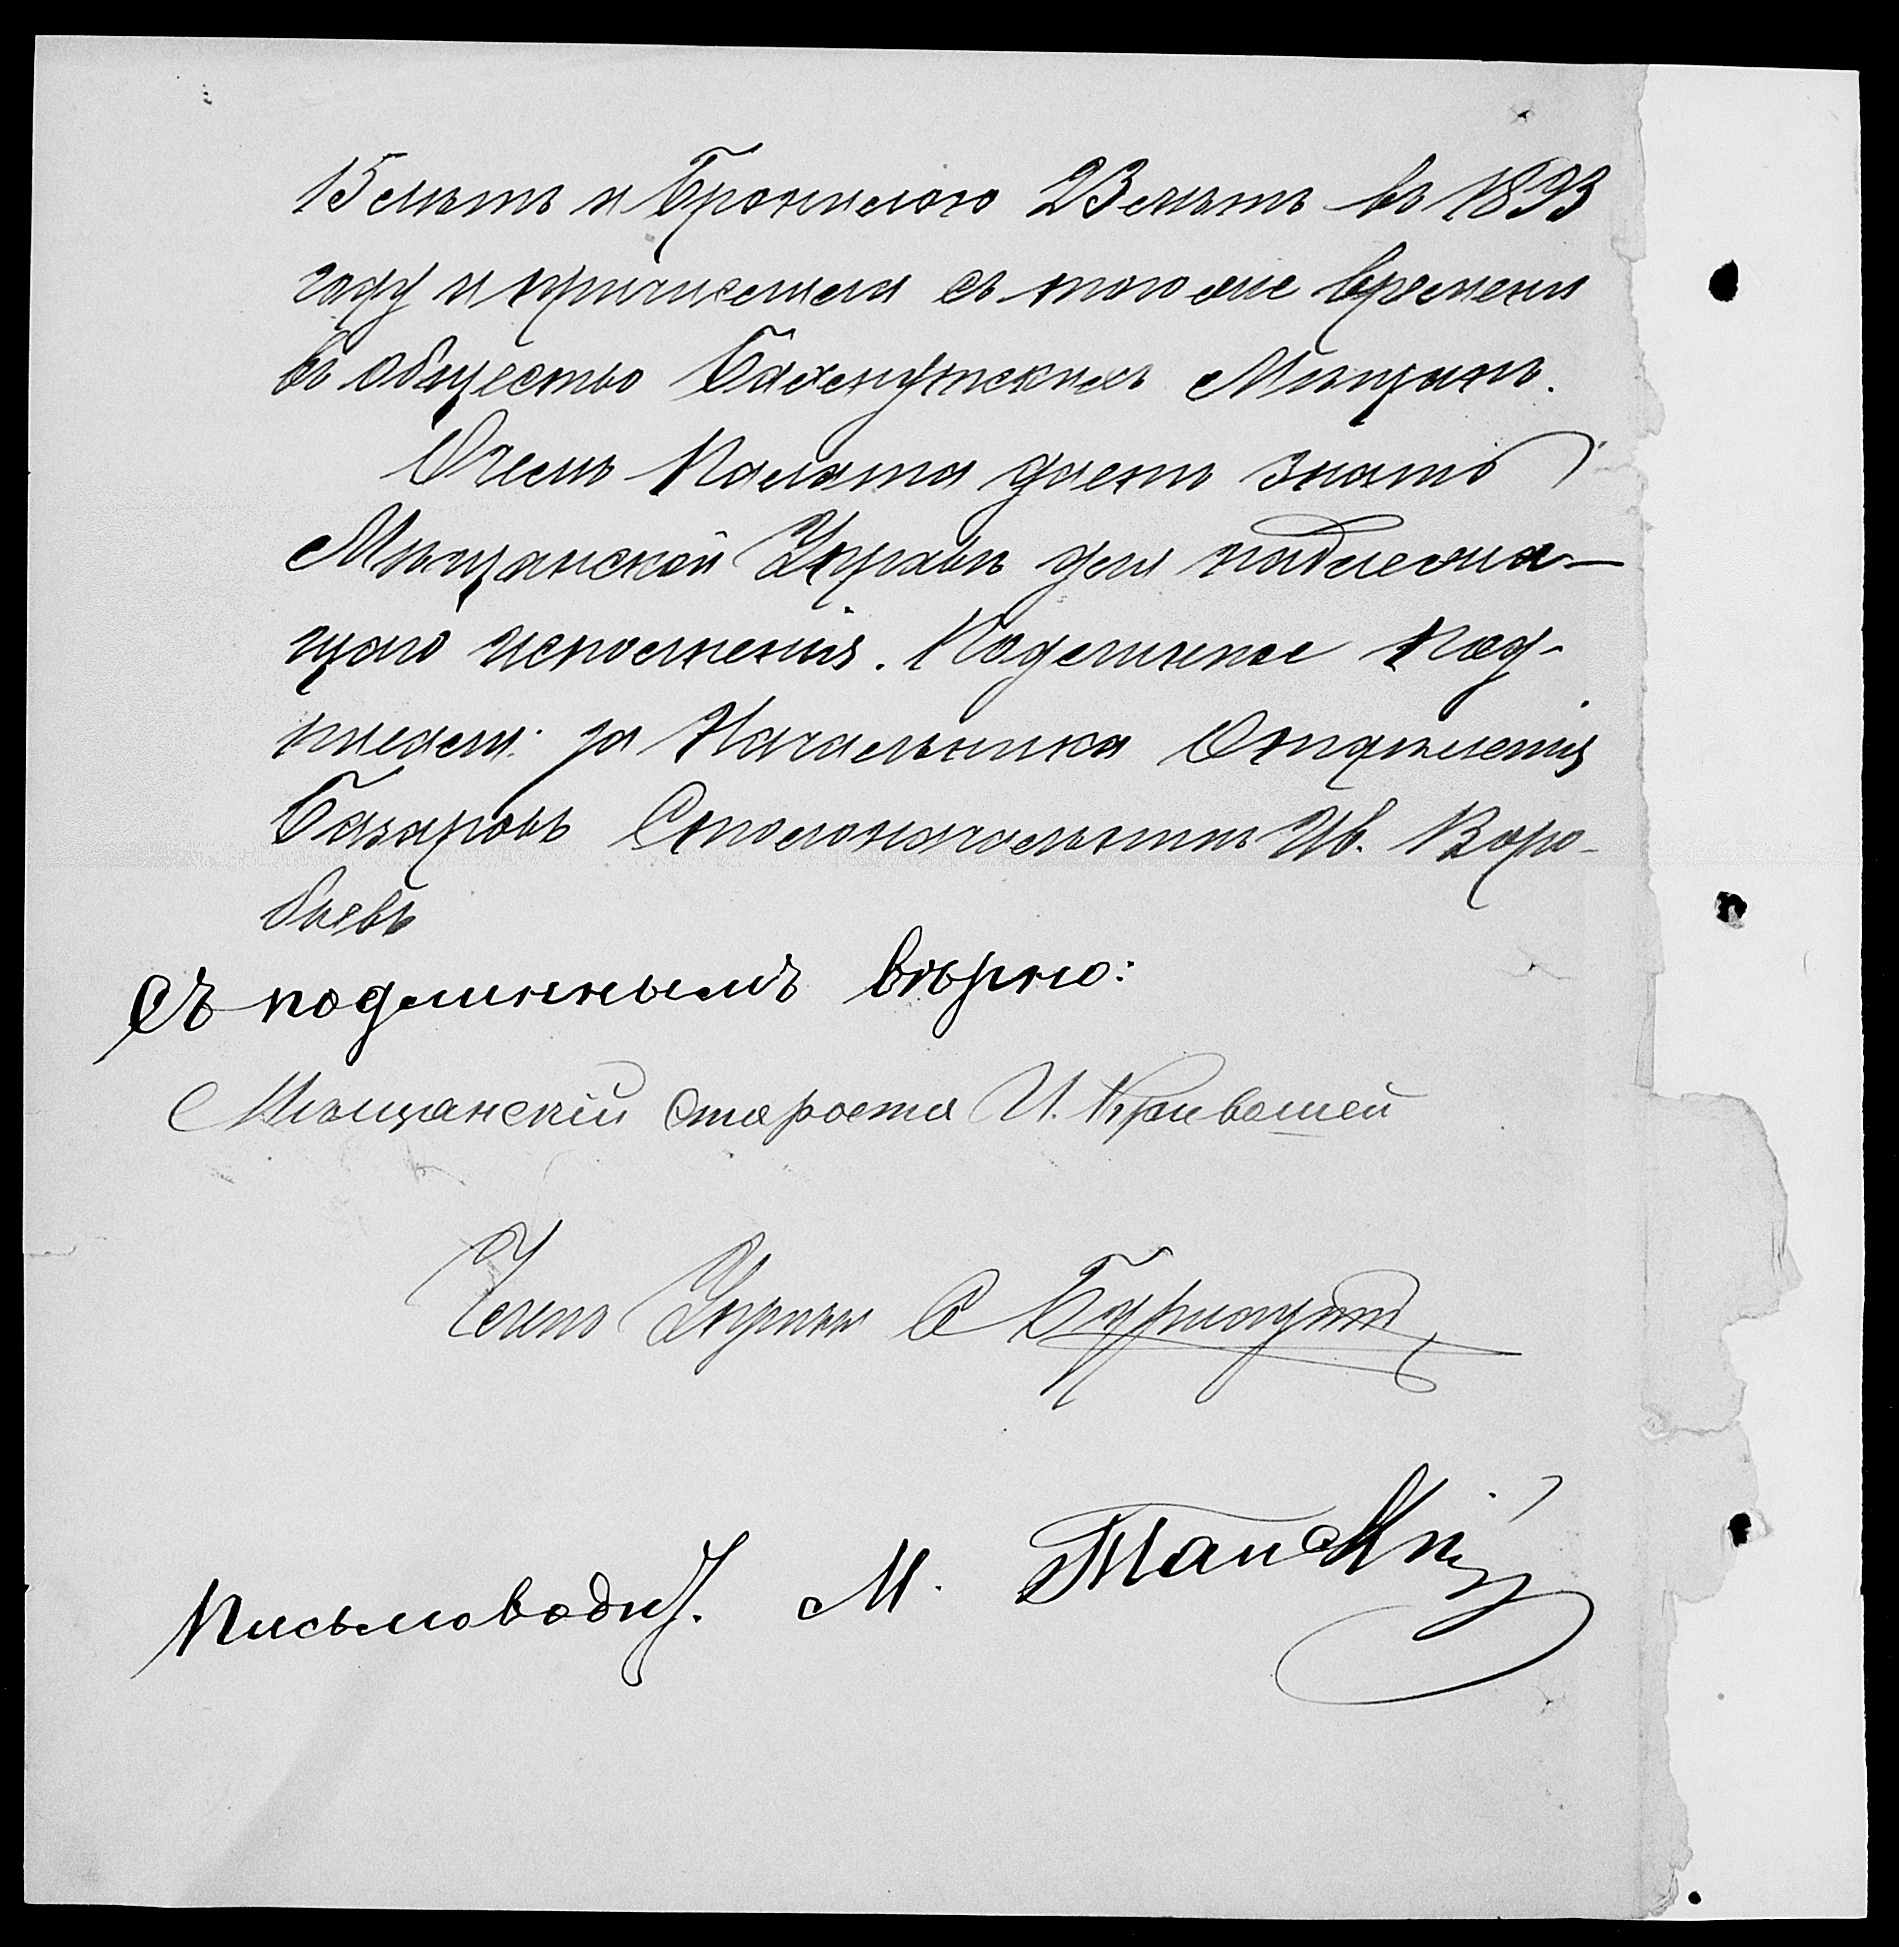 15 лѣтъ и Брониславъ 23 лѣтъ въ 1893
году и причислена съ того же времени
въ общество Бахмутскихъ Мѣщанъ.
О чемъ Палата даетъ знать
Мѣщанской Управѣ для надлежа-
щаго исполненія. Подлинное под-
писали: за Начальника Отдѣленія
Базаровъ Столоначальникъ Ив. Воро-
бьевъ
Съ подлиннымъ вѣрно:
Мѣщанскій староста И. Кривошей
Членъ Управы С
Письмоводит. М.